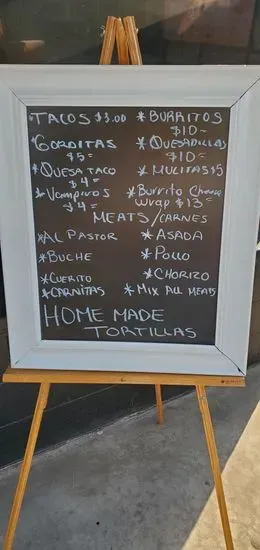 *TACOS $3.00
*BURRITOS
$10-
*GORDITAS
$5=
*QUESADILLAS
$10=
*QUESA TACO
$4=
*MULITAS $5
*Vampiros
$4=
*Burrito Cheese
wrap $13=
MEATS/CARNES
*AL PASTOR
*ASADA
*BUCHE
*POLLO
*CUERITO
*CHORIZO
*CARNITAS
*MIX ALL MEATS
HOME MADE
TORTILLAS